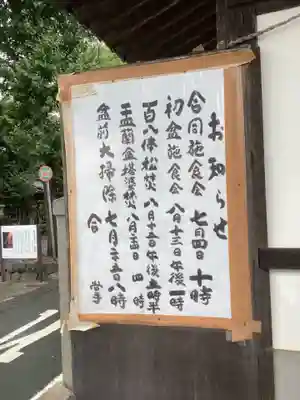 お知らせ
合同施食会 七月四日 十時
初盆施食会 八月十三日 午後一時
百八体松焚火 八月十三日 午後
盂蘭盆塔婆焚火 八月 四時
盆前大掃除 七月 八時
合掌